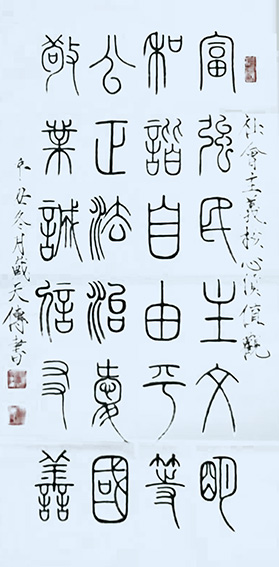 社會主義核心價值觀
富強民主文明
和諧自由平等
公正法治愛國
敬業誠信友善
辛丑冬月天書